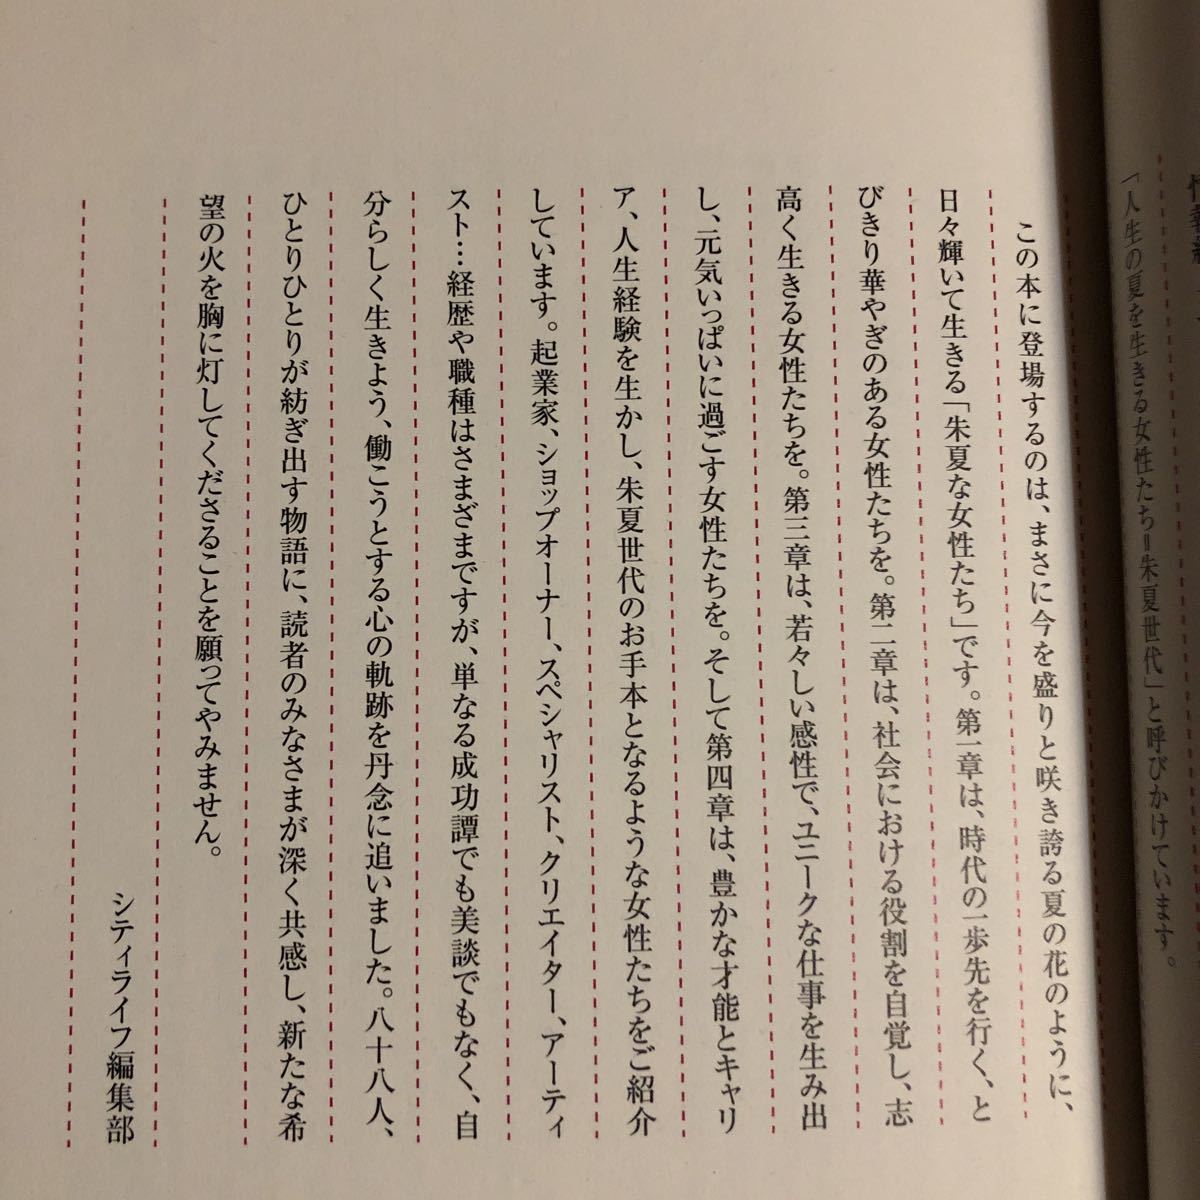 「人生の夏を生きる女性たち＝朱夏世代」と呼びかけています。
この本に登場するのは、まさに今を盛りと咲き誇る夏の花のように、
日々輝いて生きる「朱夏な女性たち」です。第一章は、時代の一歩先を行く、と
びきり華やぎのある女性たちを。第二章は、社会における役割を自覚し、志
高く生きる女性たちを。第三章は、若々しい感性で、ユニークな仕事を生み出
し、元気いっぱいに過ごす女性たちを。そして第四章は、豊かな才能とキャリ
ア、人生経験を生かし、朱夏世代のお手本となるような女性たちをご紹介
しています。起業家、ショップオーナー、スペシャリスト、クリエイター、アーティ
スト…経歴や職種はさまざまですが、単なる成功譚でも美談でもなく、自
分らしく生きよう、働こうとする心の軌跡を丹念に追いました。八十八人、
ひとりひとりが紡ぎ出す物語に、読者のみなさまが深く共感し、新たな希
望の火を胸に灯してくださることを願ってやみません。
シティライフ編集部